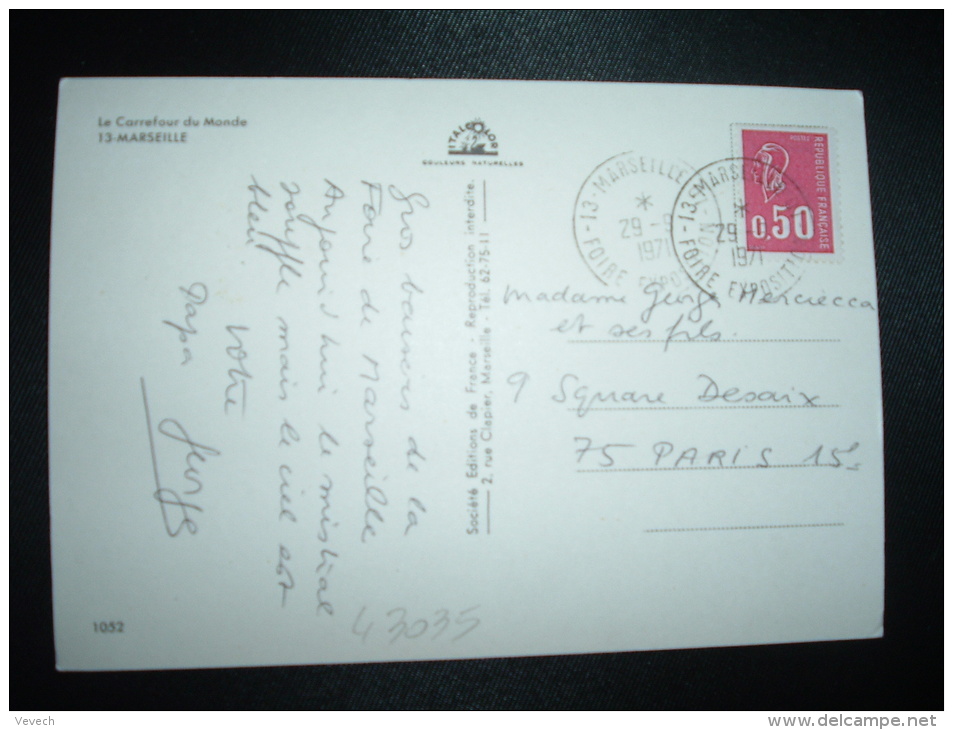 Le Carrefour du Monde
13-MARSEILLE
ITALCOLOR
COULEURS NATURELLES
Gros baisers de la
Foire de Marseille
Aujourd'hui le mistral
souffle mais le ciel est
bleu
Votre
Papa
Société Editions de France - Reproduction interdite.
2, rue Clapier, Marseille - Tél. 62-75-11
13-MARSEILLE
29 -
1971
FOIRE EXPOSITION
13-MARSEILLE
29 -
1971
FOIRE EXPOSITION
POSTES
REPUBLIQUE FRANÇAISE
0,50
Madame George Mercieca
et ses fils.
9 Square Desaix
75 PARIS 15e
1052
43035
Vevech
www.delcampe.net